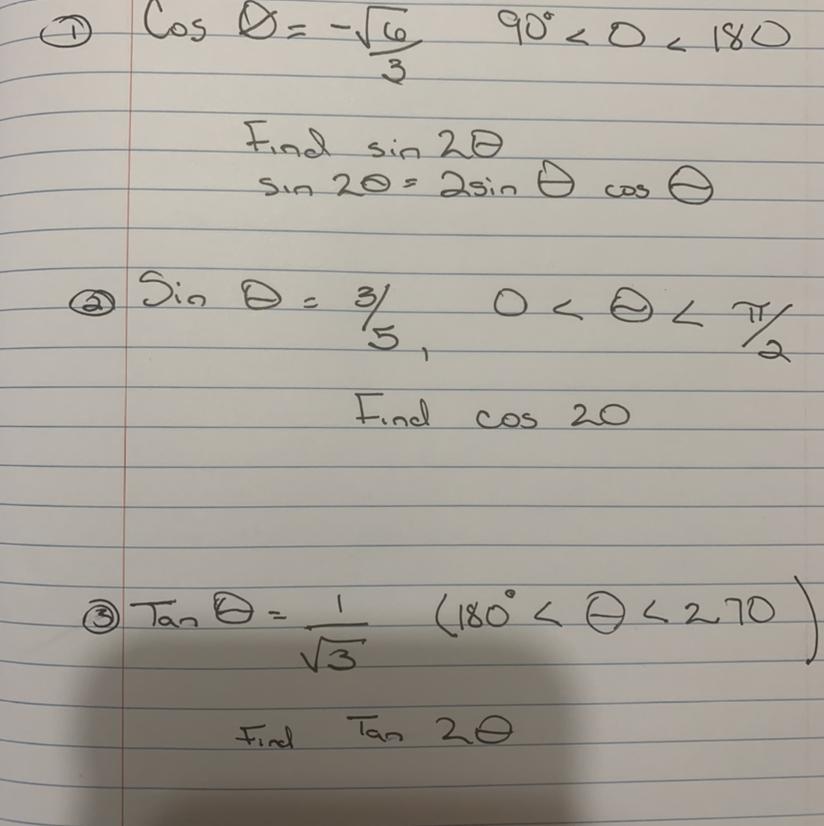 ① Cos θ = -√6/3 90° < 0 < 180
Find sin 2θ
sin 2θ = 2sin θ cos θ
② Sin θ = 3/5, 0 < θ < π/2
Find cos 20
③ Tan θ = 1/√3 (180° < θ < 270)
Find Tan 2θ